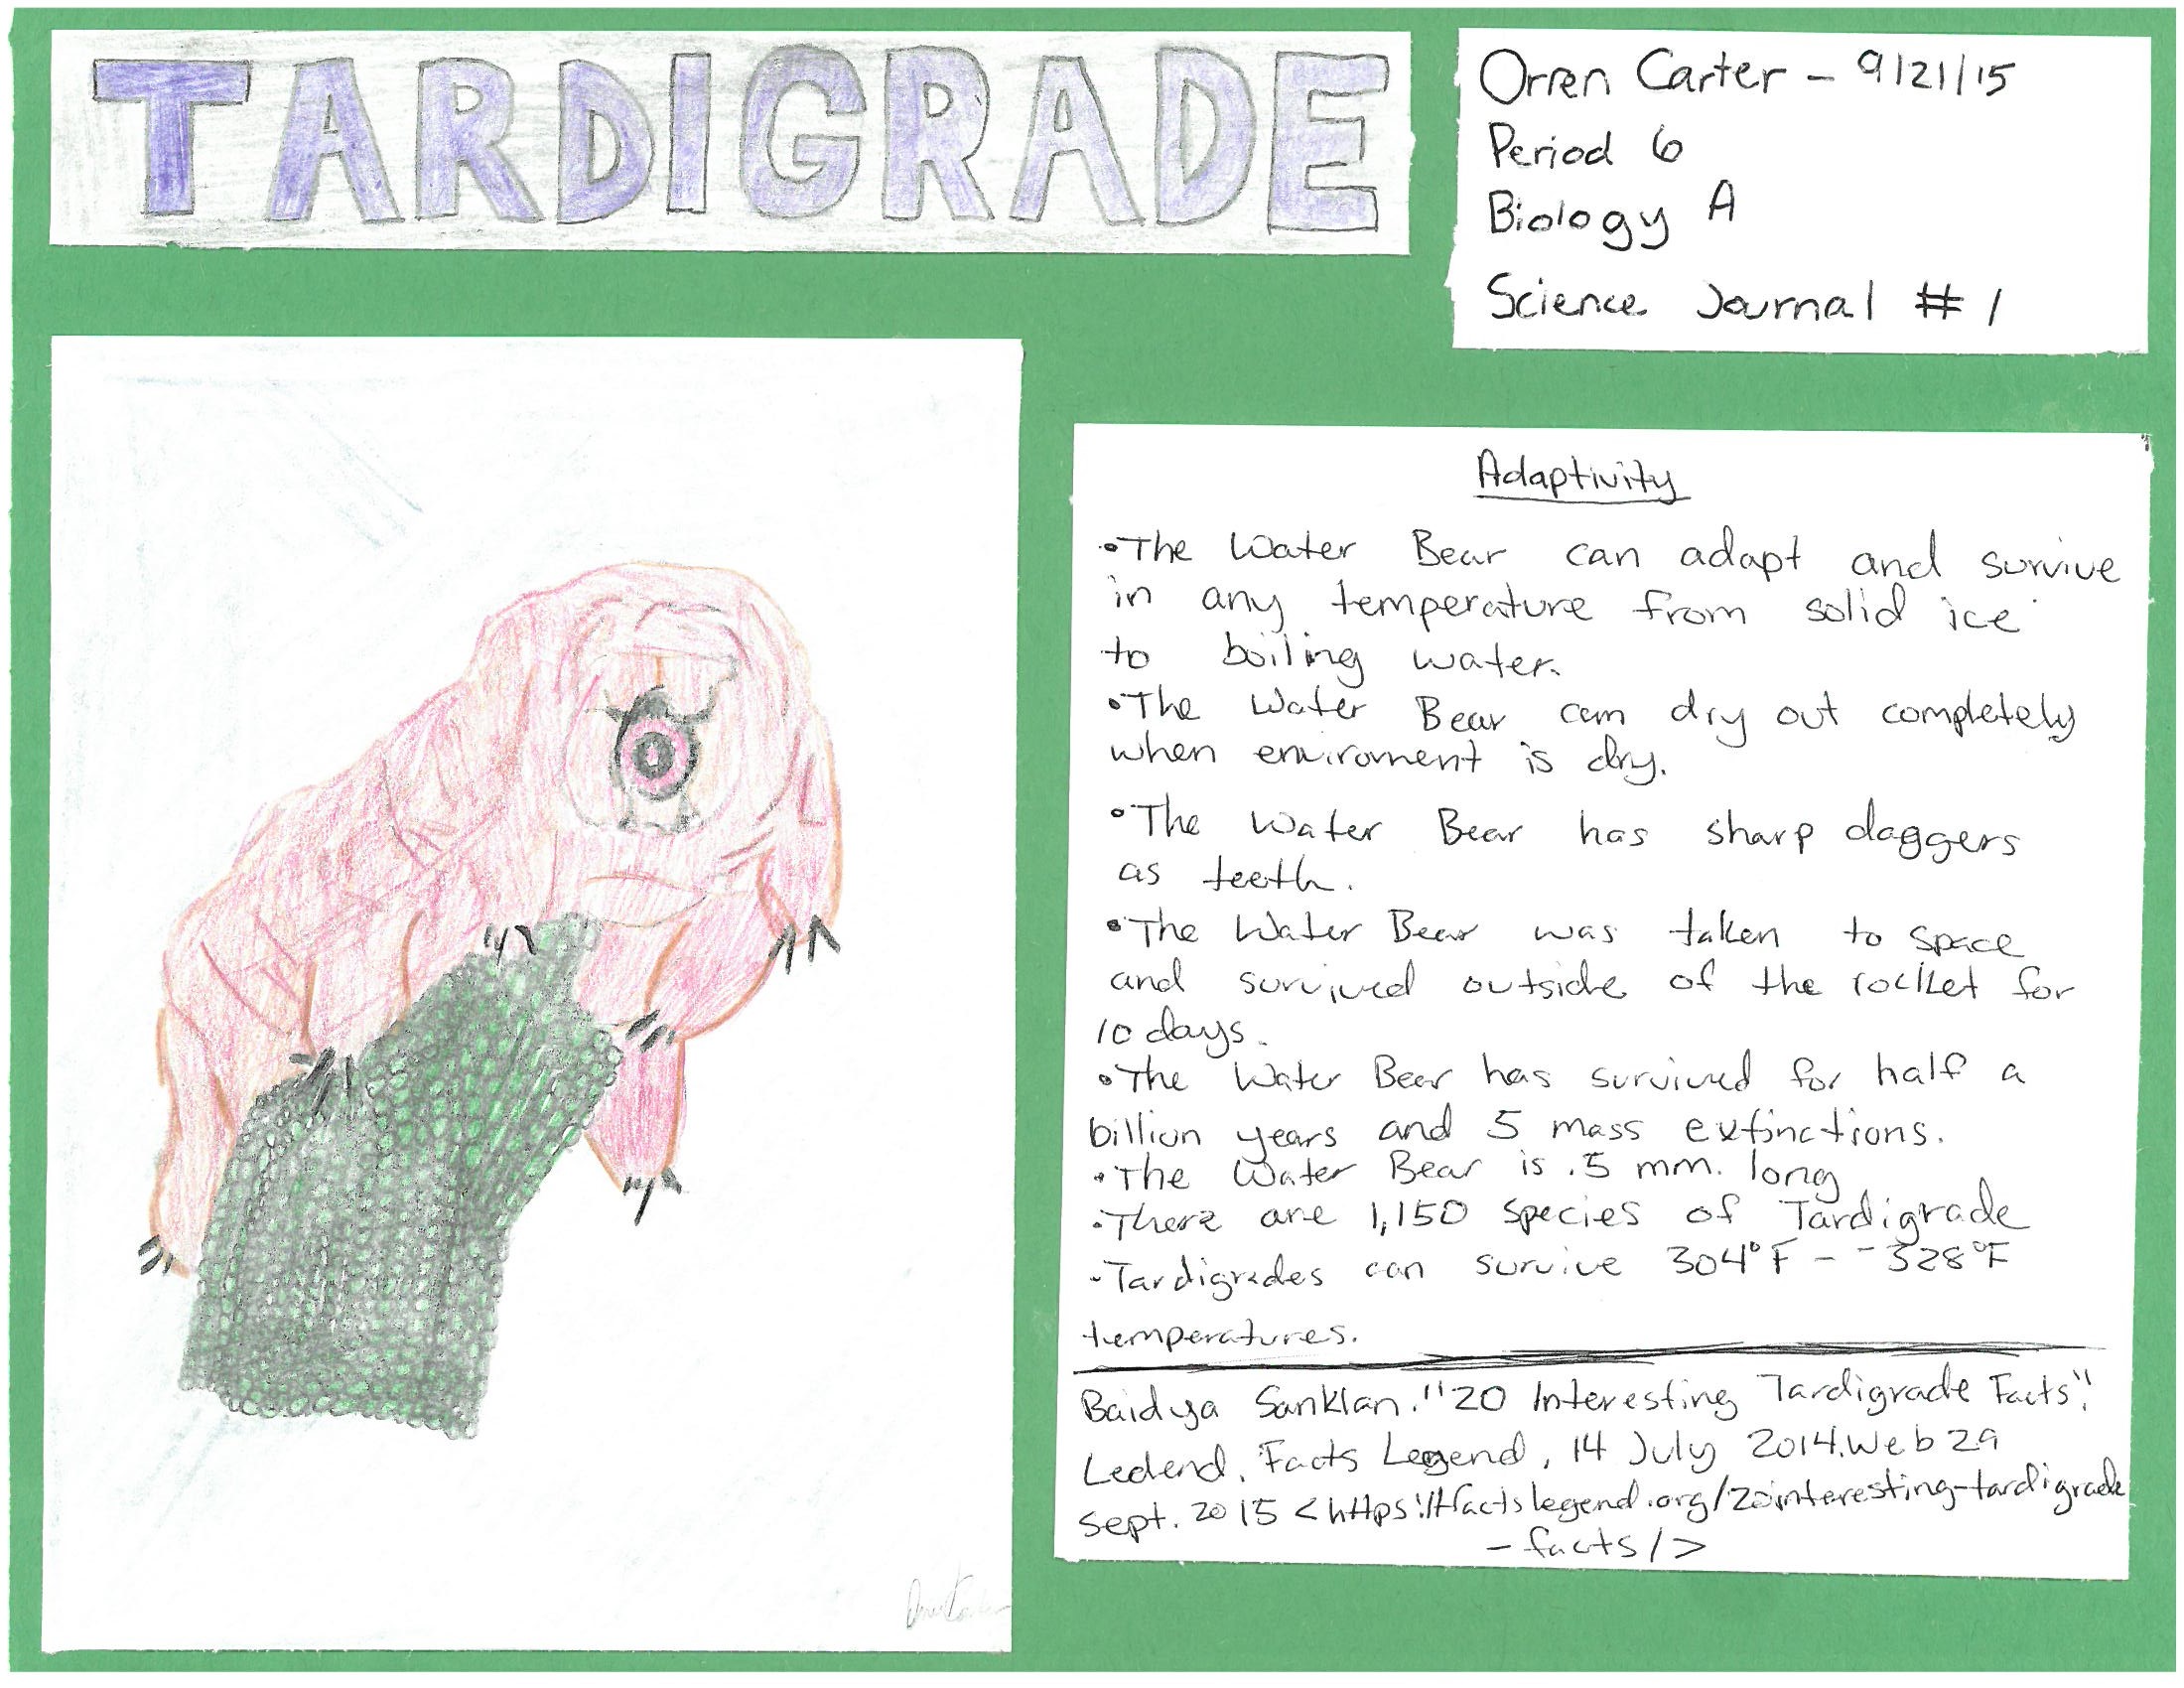 TARDIGRADE
Orren Carter - 9/21/15
Period 6
Biology A
Science Journal #1
Adaptivity
•The Water Bear can adapt and survive
in any temperature from solid ice
to boiling water.
•The Water Bear can dry out completely
when enviroment is dry.
•The Water Bear has sharp daggers
as teeth.
•The Water Bear was taken to space
and survived outside of the rocket for
10 days.
•The Water Bear has survived for half a
billion years and 5 mass extinctions.
•The Water Bear is .5 mm. long
•There are 1,150 species of Tardigrade
-Tardigrades can survive 304°F - -328°F
temperatures.
Baidya Sanklan. "20 Interesting Tardigrade Facts".
Ledend. Facts Legend, 14 July 2014. Web 29
Sept. 2015 <https://factslegend.org/20interesting-tardigrade
-facts/>